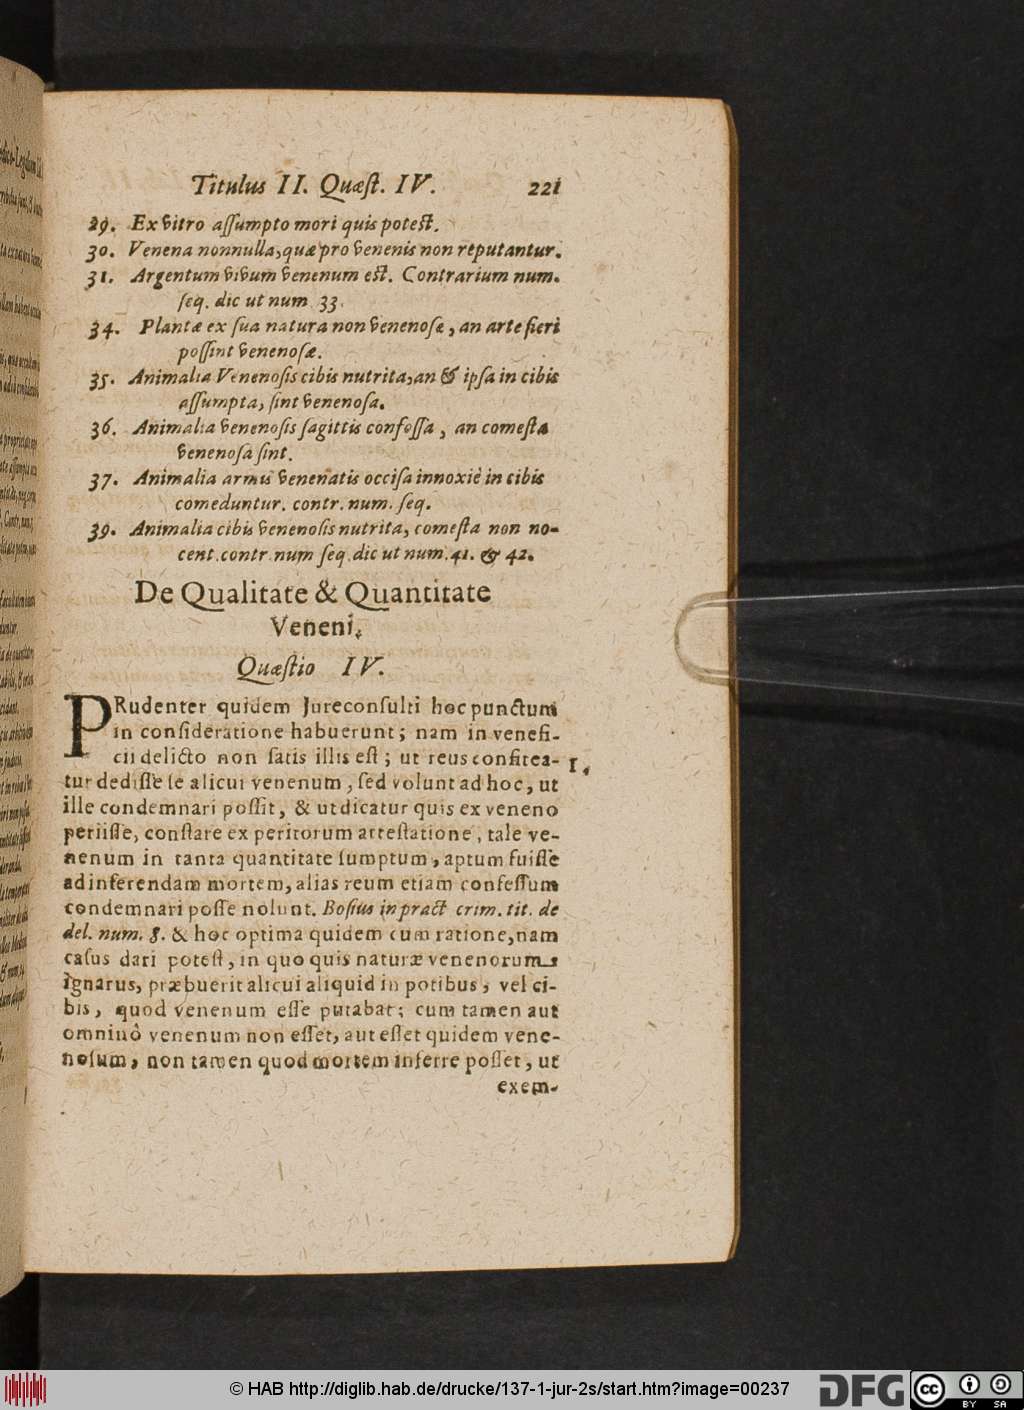 Titulus II. Quæſt. IV. 221
29. Ex vitro aſſumpto mori quis poteſt.
30. Venena nonnulla, quæ pro venenis non reputantur.
31. Argentum vivum venenum eſt. Contrarium num.
ſeq. dic ut num 33.
34. Plantæ ex ſua natura non venenoſæ, an arte fieri
poſſint venenoſæ.
35. Animalia Venenoſis cibis nutrita, an & ipſa in cibis
aſſumpta, ſint venenoſa.
36. Animalia venenoſis ſagittis confoſſa, an comeſta
venenoſa ſint.
37. Animalia armis venenatis occiſa innoxiè in cibis
comeduntur. contr. num. ſeq.
39. Animalia cibis venenoſis nutrita, comeſta non no-
cent. contr. num ſeq. dic ut num. 41. & 42.
De Qualitate & Quantitate
Veneni.
Quæſtio IV.
PRudenter quidem Jureconſulti hoc punctum
in conſideratione habuerunt; nam in venefi-
cii delicto non ſatis illis eſt; ut reus confitea- 1.
tur dediſſe ſe alicui venenum, ſed volunt ad hoc, ut
ille condemnari poſſit, & ut dicatur quis ex veneno
periiſſe, conſtare ex peritorum atteſtatione, tale ve-
nenum in tanta quantitate ſumptum, aptum fuiſſe
ad inferendam mortem, alias reum etiam confeſſum
condemnari poſſe nolunt. Boſius in pract crim. tit. de
del. num. 8. & hoc optima quidem cum ratione, nam
caſus dari poteſt, in quo quis naturæ venenorum
ignarus, præbuerit alicui aliquid in potibus, vel ci-
bis, quod venenum eſſe putabat; cum tamen aut
omninò venenum non eſſet, aut eſſet quidem vene-
noſum, non tamen quod mortem inferre poſſet, ut
exem-
© HAB http://diglib.hab.de/drucke/137-1-jur-2s/start.htm?image=00237
DFG
cc BY SA